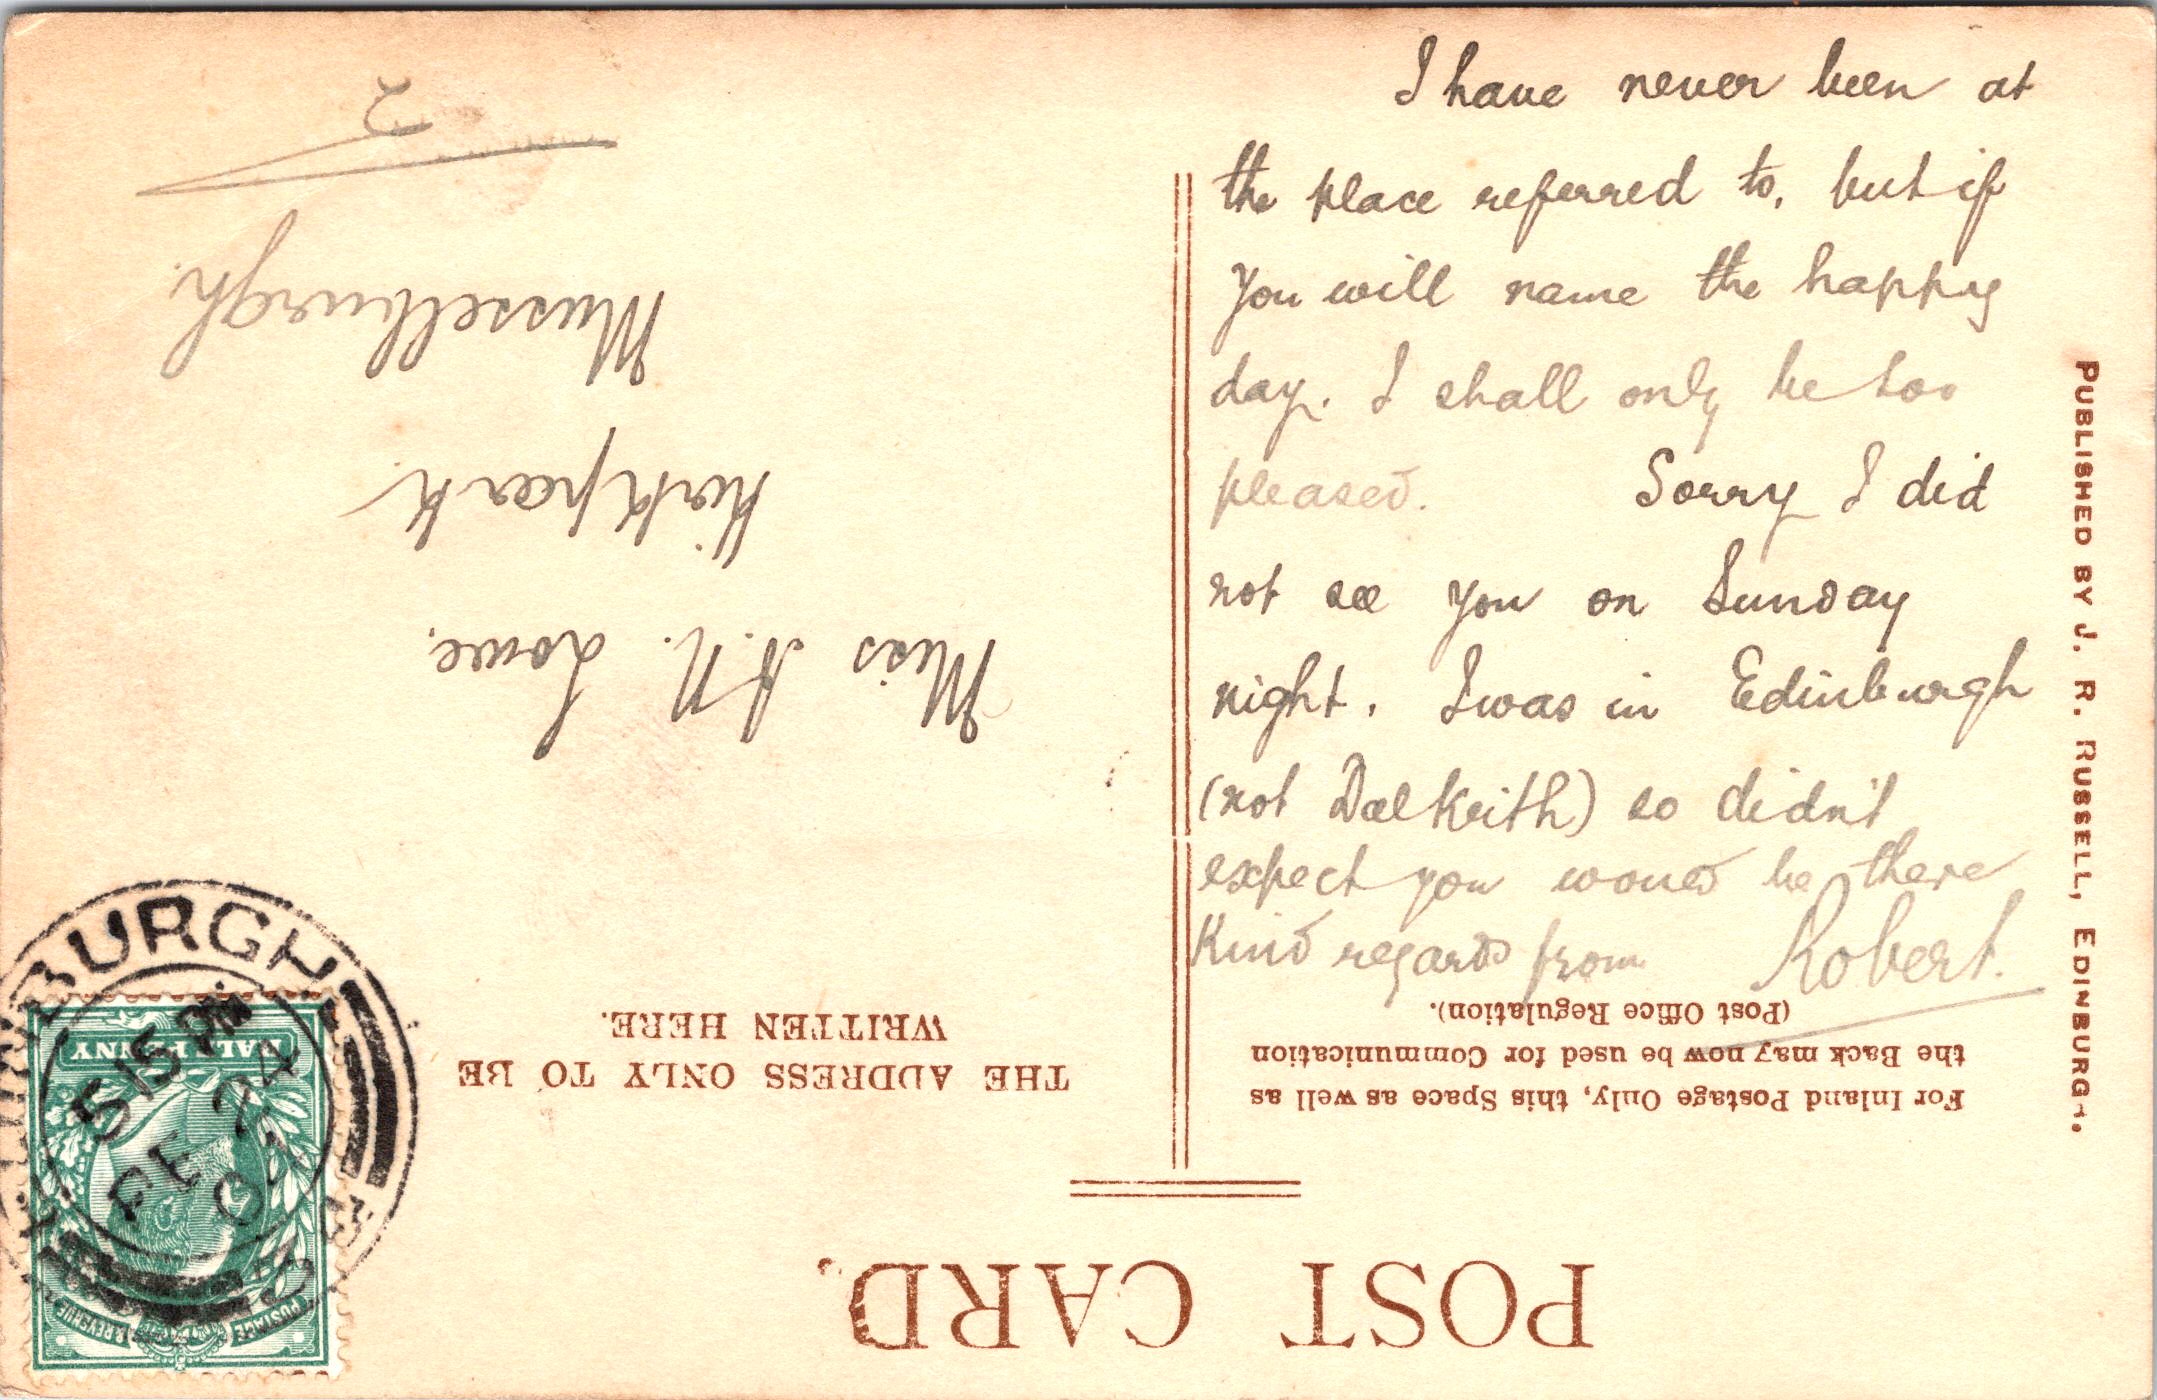 I have never been at
the place referred to, but if
you will name the happy
day. I shall only be too
pleased. Sorry I did
not see you on Sunday
night. I was in Edinburgh
(not Dalkeith) so didn't
expect you would be there
Kind regards from Robert.
PUBLISHED BY J. R. RUSSELL, EDINBURGH.
POST CARD.
For Inland Postage Only, this Space as well as
the Back may now be used for Communication
(Post Office Regulation).
THE ADDRESS ONLY TO BE
WRITTEN HERE.
Miss A. N. Lowe,
Kirkpark
Musselburgh.
2
BURGH
5 15 PM
FE 24
0
HALFPENNY
POSTAGE & REVENUE